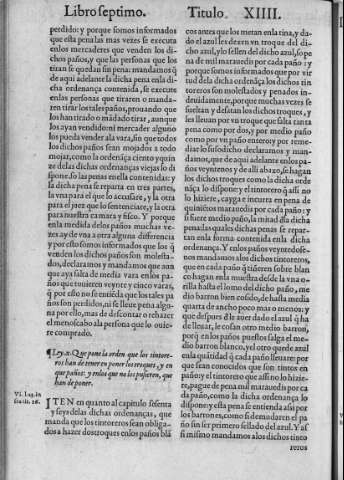 Libro septimo.
Titulo. XIIII.
perdido: y porque somos informados
que esta pena las mas vezes se executa
en los mercaderes que venden los di-
chos paños, y que las personas que los
tirã se quedan sin pena: mandamos q̃
de aqui adelante la dicha pena en la di-
cha ordenança contenida, se execute
en los personas que tiraren o manda-
ren tirar los tales paños, prouando que
los han tirado o mãdado tirar, aunque
los ayan vendido: ni mercader alguno
los pueda vender a la vara, sin que todos
los dichos paños sean mojados a todo
mojar, como la ordenãça ciento y quin
ze delas dichas ordenanças viejas lo di
spone. so las penas en ella contenidas: y
la dicha pena se reparta en tres partes,
la vna para el que lo acusare, y la otra
para el juez que lo sentenciare, y la otra
para nuestra camara y fisco. Y porque
en la medida delos paños muchas ve-
zes ay de vna a otra alguna differencia
y por esto somos informados que los q̃
venden los dichos paños son molesta-
dos, declaramos y mandamos que aun
que aya falta de media vara en los pa-
ños que tuuieren veynte y cinco varas,
q̃ por esso no se entiẽda que los tales pa
ños son perdidos, ni se lleue pena algu-
na por ello, mas de descontar o rehazer
el menoscabo ala persona que lo ouie-
re comprado.
¶ Ley .x. Que pone la orden que los tintore-
ros han de tener en poner los troques, y en
que paños: y en los que no los pusieren, que
han de poner.
VI. Ley. in
ITEN en quanto al capitulo sesenta
y seys delas dichas ordenanças, que
manda que los tintoreros sean obliga-
dos a hazer dos troques en los paños blã
cos antes que los metan en la tina, y da-
do el azul les dexen vn troque del di-
cho azul, y lo sellen del dicho azul, so pe
na de mil marauedis por cada paño: y
porque somos informados que por vir
tud dela dicha ordenãça los dichos tin
toreros son molestados y penados in-
deuidamente, porque muchas vezes se
sueltan y desatan los dichos troques, y
les lleuan por vn troque que falta tanta
pena como por dos, y por medio paño
como por vn paño entero: y por reme-
diar lo susodicho declaramos y man-
damos, que de aqui adelante en los pa-
ños veyntenos y de alli abaxo, se hagan
los dichos troques como la dicha orde
nãça lo dispone: y el tintorero q̃ assi no
lo hiziere, cayga e incurra en pena de
quiniẽtos marauedis por cada paño: y
si fuere medio paño, la mitad dela dicha
pena: las quales dichas penas se repar-
tan en la forma contenida en la dicha
ordenança. Y en los paños veyntedose-
nos mandamos alos dichos tintoreros,
que en cada paño q̃ tiñeren sobre blan
co hagan en la muestra desde la vna o-
rilla hasta el lomo del dicho paño, me
dio barron bien cosido, de hasta media
quarta de ancho poco mas o menos: y
que despues dele auer dado el azul q̃ ha
de lleuar, le cosan otro medio barron,
porq̃ en los paños puestos salga el me-
dio barron blanco, y el otro quede azul
en la quãtidad q̃ cada paño lleuare: por
que sean conocidos que son tintos en
paños: y el tintorero que assi no lo hizie
re, pague de pena mil marauedis por ca
da paño, como la dicha ordenança lo
dispone: y esta pena se entienda assi por
los barrones, como si demudaren el pa
ño sin ser primero sellado del azul. Y as
si mismo mandamos alos dichos tinto
reros